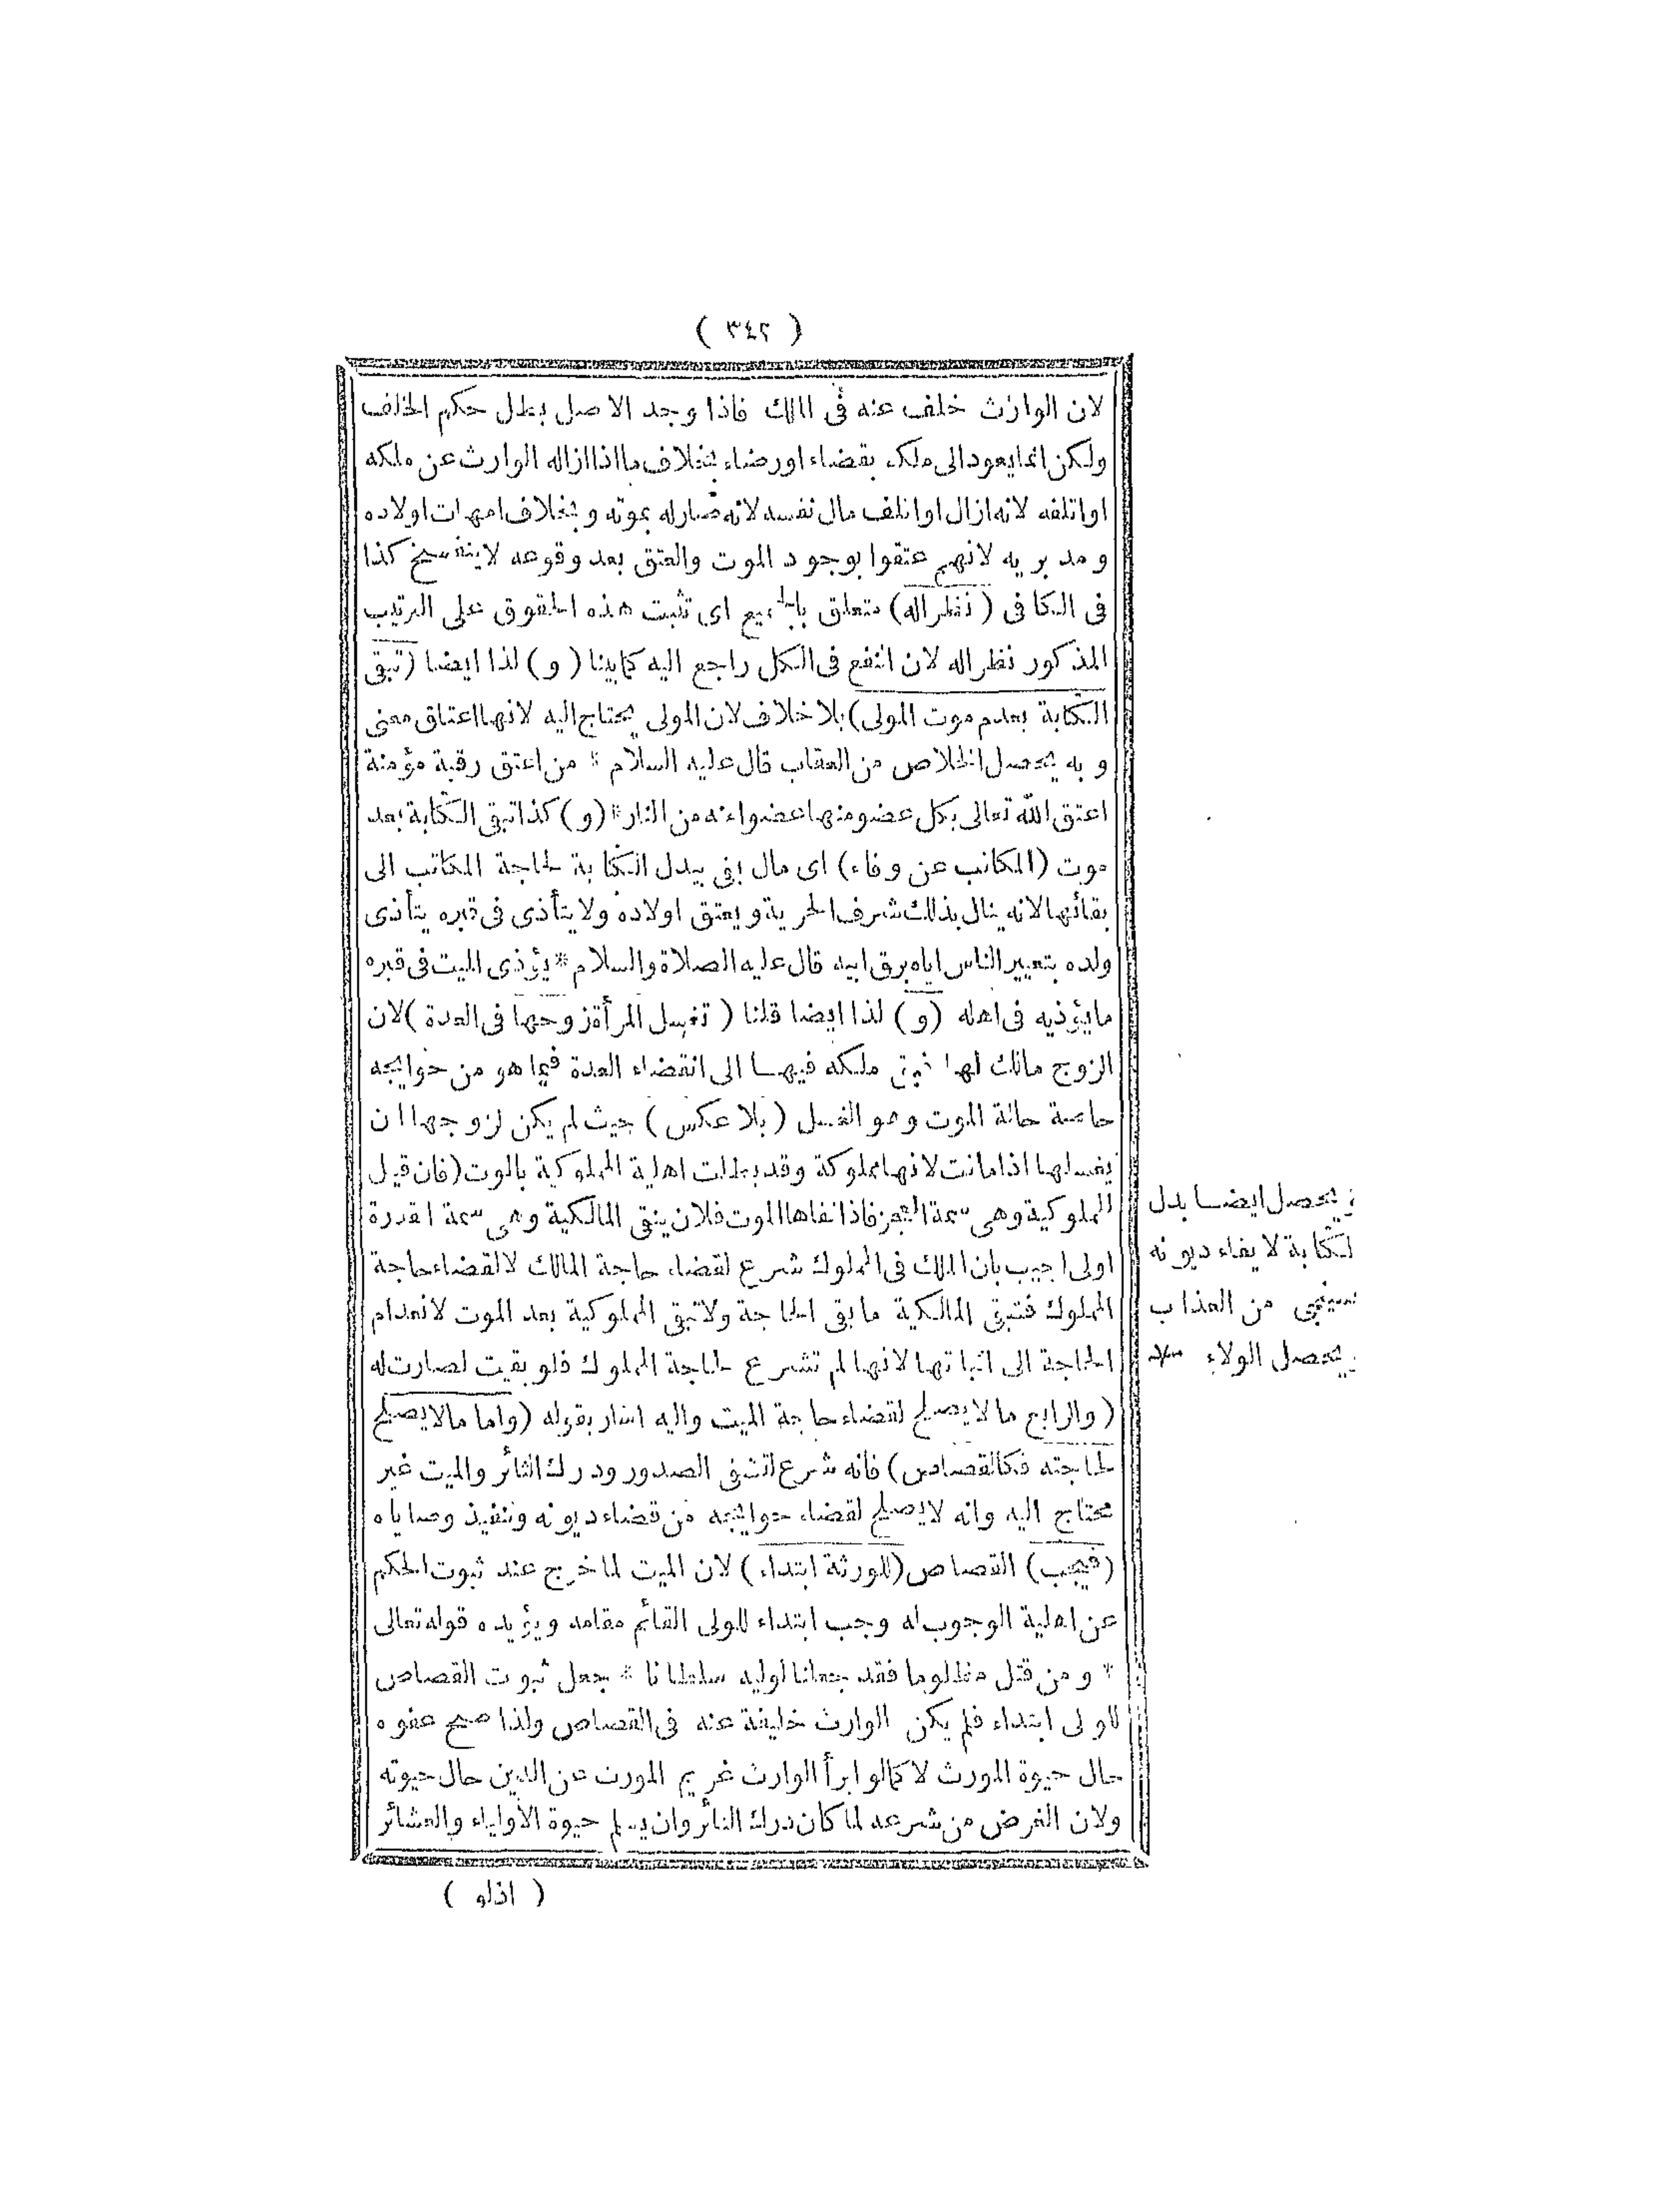 ( ٣٤٢ )
لان الوارث خلف عنه فى الملك فاذا وجد الاصل بطل حكم الخلف
ولكن انما يعود الى ملكه بقضاء اورضاء بخلاف ما اذا ازاله الوارث عن ملكه
او اتلفه لانه ازال او اتلف مال نفسه لانه صار له بموته و بخلاف امهات اولاده
و مدبريه لانهم عتقوا بوجود الموت والعتق بعد وقوعه لاينفسخ كذا
فى الكافى ( نظرا له ) متعلق بالجميع اى تثبت هذه الحقوق على الترتيب
المذكور نظرا له لان النفع فى الكل راجع اليه كمابينا ( و ) لذا ايضا ( تبقى
الكتابة بعدم موت المولى ) بلا خلاف لان المولى يحتاج اليه لانها اعتاق معنى
و به يحصل الخلاص من العقاب قال عليه السلام * من اعتق رقبة مؤمنة
اعتق الله تعالى بكل عضو منها عضوا منه من النار * ( و ) كذا تبقى الكتابة بعد
موت ( المكاتب عن وفاء ) اى مال يفى ببدل الكتابة لحاجة المكاتب الى
بقائها لانه ينال بذلك شرف الحرية و يعتق اولاده ولا يتأذى فى قبره يتأذى
ولده بتعيير الناس اياه برق ابيه قال عليه الصلاة والسلام * يؤذى الميت فى قبره
مايؤذيه فى اهله ( و ) لذا ايضا قلنا ( تغسل المرأة زوجها فى العدة ) لان
الزوج مالك لها فيبقى ملكه فيها الى انقضاء العدة فيما هو من حوايجه
خاصة حالة الموت وهو الغسل ( بلا عكس ) حيث لم يكن لزوجها ان
يغسلها اذا ماتت لانها مملوكة وقد بطلت اهلية المملوكية بالموت ( فان قيل
المملوكية وهى سمة العجز فاذا نفاها الموت فلان ينفى المالكية وهى سمة القدرة
اولى اجيب بان الملك فى المملوك شرع لقضاء حاجة المالك لا لقضاء حاجة
المملوك فتبقى المالكية ما بقى الحاجة ولا تبقى المملوكية بعد الموت لانعدام
الحاجة الى اثباتها لانها لم تشرع لحاجة المملوك فلو بقيت لصارت له
( والرابع ما لا يصلح لقضاء حاجة الميت واليه اشار بقوله ( واما مالا يصلح
لحاجته فكالقصاص ) فانه شرع لتشفى الصدور ودرك الثائر والميت غير
محتاج اليه وانه لا يصلح لقضاء حوايجه من قضاء ديونه وتنفيذ وصاياه
( فيجب ) القصاص ( للورثة ابتداء ) لان الميت لما خرج عند ثبوت الحكم
عن اهلية الوجوب له وجب ابتداء للولى القائم مقامه ويؤيده قوله تعالى
* و من قتل مظلوما فقد جعلنا لوليه سلطانا * جعل ثبوت القصاص
للولى ابتداء فلم يكن الوارث خليفة عنه فى القصاص ولذا صح عفوه
حال حيوة المورث لا كمالو ابرأ الوارث غريم المورث عن الدين حال حيوته
ولان الغرض من شرعه لما كان درك الثائر وان يسلم حيوة الأولياء والعشائر
( اذلو )
يحصل ايضا بدل
لكتابة لايفاء ديونه
من العذاب
يحصل الولاء